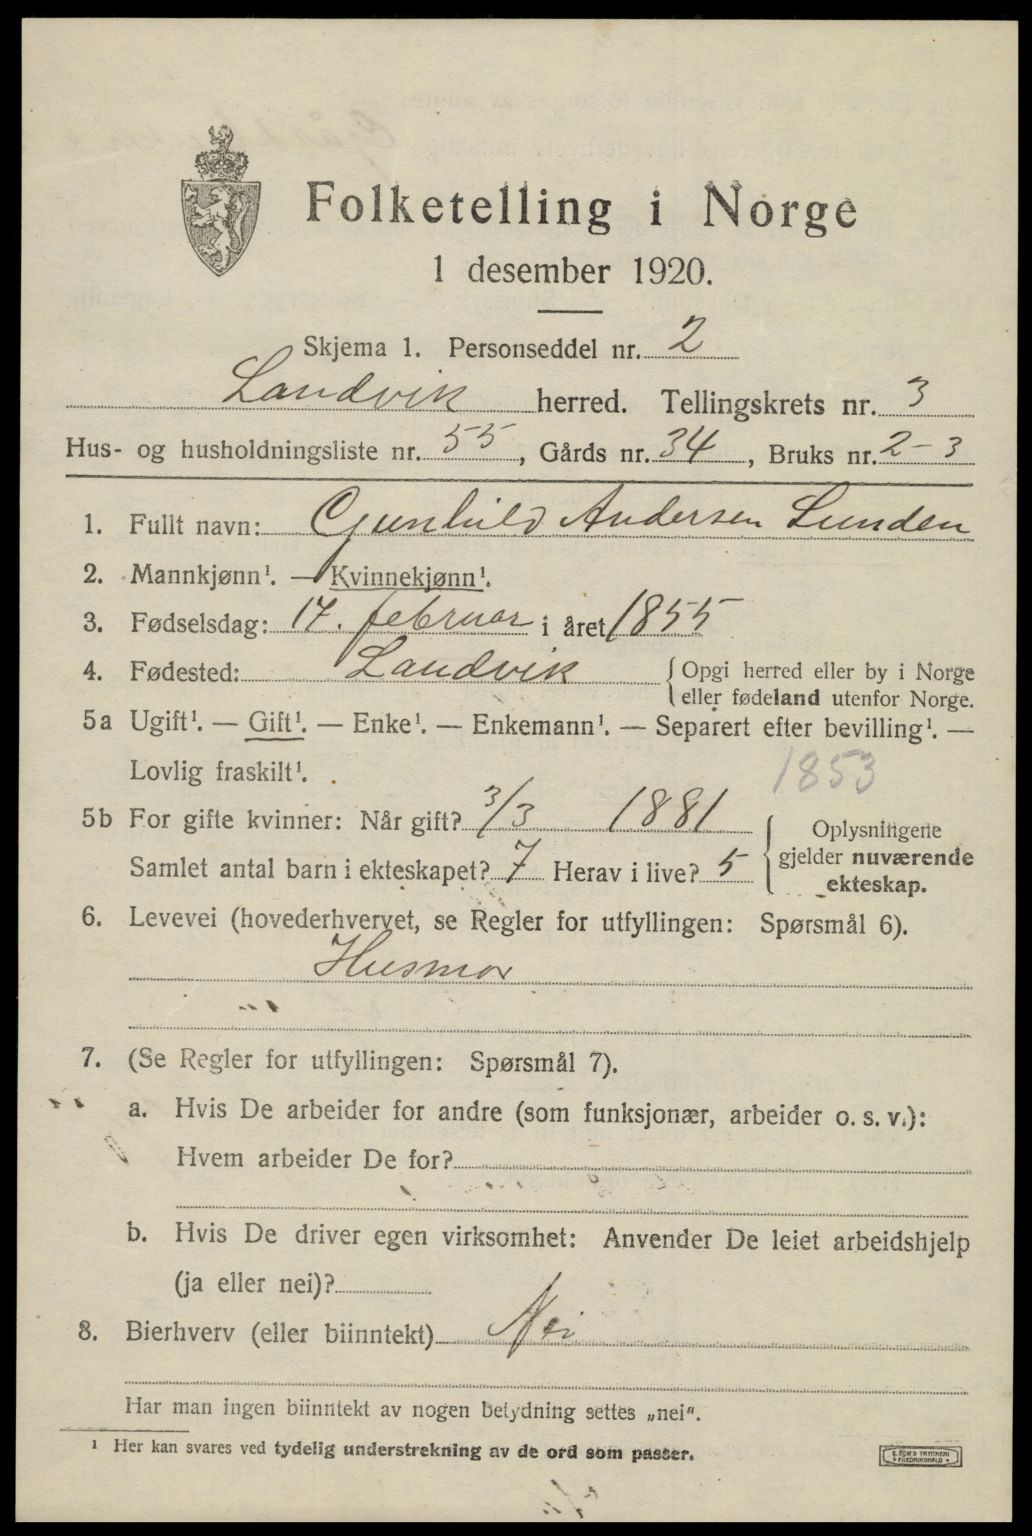 Folketelling i Norge
1 desember 1920.
Skjema 1. Personseddel nr. 2
Landvik herred. Tellingskrets nr. 3
Hus- og husholdningsliste nr. 55, Gårds nr. 34, Bruks nr. 2-3
1. Fullt navn: Gunhild Andersen Lunden
2. Mannkjønn¹. — Kvinnekjønn¹.
3. Fødselsdag: 17. februar i året 1855
4. Fødested: Landvik { Opgi herred eller by i Norge
eller fødeland utenfor Norge.
5a Ugift¹. — Gift¹. — Enke¹. — Enkemann¹. — Separert efter bevilling¹. —
Lovlig fraskilt¹. 1853
5b For gifte kvinner: Når gift? 3/3 1881
Samlet antal barn i ekteskapet? 7 Herav i live? 5
{ Oplysningene
gjelder nuværende
ekteskap.
6. Levevei (hovederhvervet, se Regler for utfyllingen: Spørsmål 6).
Husmor
7. (Se Regler for utfyllingen: Spørsmål 7).
a. Hvis De arbeider for andre (som funksjonær, arbeider o. s. v.):
Hvem arbeider De for?
b. Hvis De driver egen virksomhet: Anvender De leiet arbeidshjelp
(ja eller nei)?
8. Bierhverv (eller biinntekt) Nei
Har man ingen biinntekt av nogen betydning settes „nei".
¹ Her kan svares ved tydelig understrekning av de ord som passer.